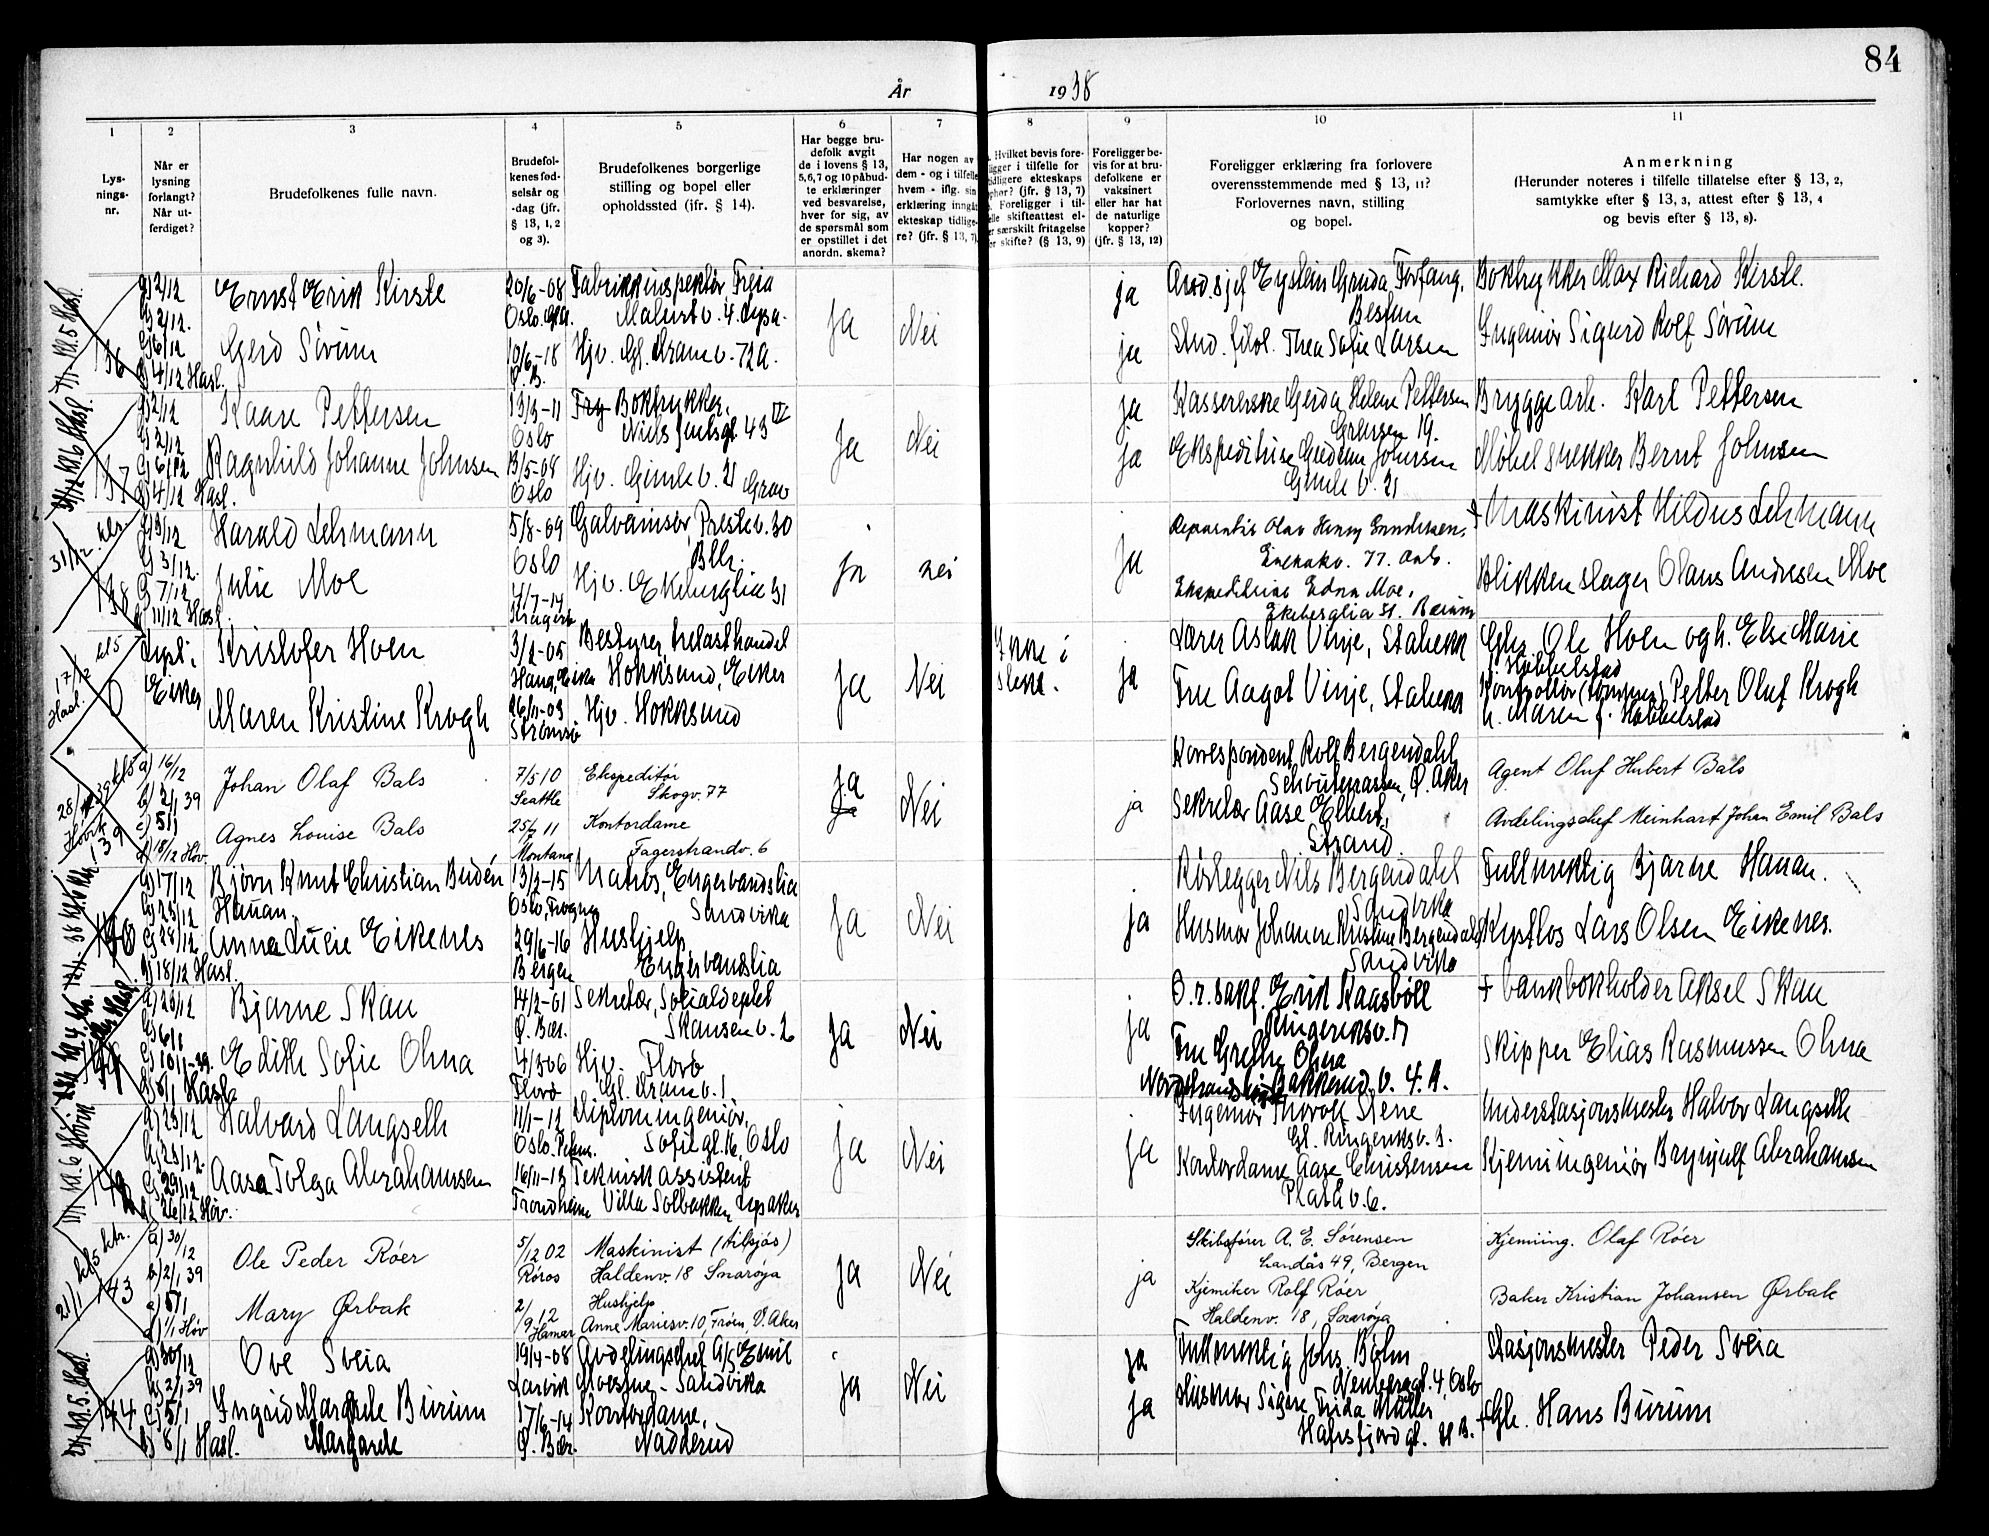 84
År 1938
1 2 3 4 5 6 7 8 9 10 11
Lys-
nings-
nr.
Når er
lysning
forlangt?
Når ut-
ferdiget?
Brudefolkenes fulle navn.
Brudefol-
kenes fød-
selsår og
-dag (jfr.
§ 13, 1, 2
og 3).
Brudefolkenes borgerlige
stilling og bopel eller
opholdssted (ifr. § 14).
Har begge bru-
defolk avgit
de i lovens § 13,
5,6,7 og 10 påbud-
te erklæringer
ved besvarelse,
hver for sig, av
de spørsmål som
er opstillet i det
anordn. skema?
Har nogen av
dem - og i tilfelle
hvem - iflg. sin
erklæring inngåt
ekteskap tidlige-
re? (jfr. § 13, 7)
Hvilket bevis fore-
ligger i tilfelle for
tidligere ekteskaps
ophør? (jfr. § 13, 7)
Foreligger i til-
felle skifteattest el-
ler særskilt fritagelse
for skifte? (§ 13, 9)
Foreligger be-
vis for at bru-
defolkene er
vaksinert
eller har hat
de naturlige
kopper?
(jfr. § 13, 12)
Foreligger erklæring fra forlovere
overensstemmende med § 13, 11?
Forlovernes navn, stilling
og bopel.
Anmerkning
(Herunder noteres i tilfelle tillatelse efter § 13, 2,
samtykke efter § 13, 3, attest efter § 13, 4
og bevis efter § 13, 8).
136
a) 2/12
b) 2/12.
c) 6/12
d) 4/12 Hasl.
Ernst Erik Kirste
Gerd Sørum
20/6-08
Oslo.
10/6-18
Ø. B.
Fabrikkinspektør, Freia
v. 4. Lysa.
Hjv. Gl. Dramv. 72a.
Ja
Nei
ja
ja
Eystein Forfang,
Bestum
Stud. filol. Thea Sofie Larsen
Boktrykker Max Richard Kirste.
Ingeniør Sigurd Rolf Sørum
137
a) 2/12
b) 2/12
c) 6/12
d) 4/12 Hasl.
Kaare Pettersen
Ragnhild Johanne Johnsen
13/3-11
Oslo
13/5-08
Oslo
Boktrykker,
Niels Juelsgt. 43 IV
Hjv. Gimle v. 21 Grav
Ja
Nei
ja
ja
Kassererske Gerda Helene Pettersen
Grensen 19.
Ekspeditrise Gudrun Johnsen
Gimle v. 21
Bryggearb. Karl Pettersen
Møbelsnekker Bernt Johnsen
31/12 ktr.
138
a) 3/12
b) 3/12.
c) 7/12
d) 11/12 Hasl.
Harald Lehmann
Julie Moe
5/8-09
Oslo
4/7-14
Kragerø
Galvanisør, Prestev. 30
Blk.
Hjv. Ekeberglia 31
Ja
nei
Ja
Reparatør Olav Henry Gundersen,
77. Oslo.
Ekspeditrise Edna Moe,
Ekeberglia 31. Bærum
+ Maskinist Hildus Lehmann
Blikkenslager Olaus Andresen Moe
17/12 kl 5
Hasl.
0
Lyst i
Eiker
Kristofer Hoen
Maren Kristine Krogh
3/2-05
Haug, Eiker
26/11-03
Strømsø
Bestyrer, trelasthandel
Hokksund, Eiker
Hjv. Hokksund
Ja
Nei
Ikke i
slekt.
ja
Lærer Aslak Vinje, Stabekk
Fru Aagot Vinje, Stabekk
Gbr. Ole Hoen og h. Else Marie
f. Hobbelstad
Kontrollør (tømmer) Petter Oluf Krogh
h. Maren f. Hobbelstad
139
a) 16/12
b) 2/1 39
c) 5/1
d) 18/12 Høv.
Johan Olaf Bals
Agnes Louise Bals
7/5 10
Seattle
25/7 11
Montana
Ekspeditør
Skogv. 77
Kontordame
Fagerstrandv. 6
ja
Nei
ja
Korrespondent Rolf Bergendahl,
Ø. Aker
Sekretær Aase Elbert,
Strand.
Agent Oluf Hubert Bals
Avdelingschef Meinhart Johan Emil Bals
140
a) 17/12
b) 23/12
c) 28/12
d) 18/12 Hasl.
Bjørn Knut Christian Budén
Hauan.
Anna Lucie Eikenes
13/2-15
Oslo, Trogne
29/6-16
Bergen
Matros, Engervandslia
Sandvika
Hushjelp
Engervanslia
Ja
Nei
Ja
Rørlegger Nils Bergendahl
Sandvika
Husmor Johanne Kristine Bergendahl
Sandvika
Fullmektig Bjarne Hauan.
Kystlos Lars Olsen Eikenes.
a) 23/12
b) 6/1
c) 10/1-39.
d) 8/1 Hasl.
Bjarne Skau
Edith Sofie Ohna
14/2-01
Ø. Bær.
4/3 06
Florø
Sekretær, Socialdeptet
Skansen v. 2
Hjv. Florø
Gl. Dram v. 1
Ja
Nei
ja
O.r.sakf. Erik Raasbøll
Ringeriksv. 17
Fru Grethe Ohna
Bakkerud v. 4. A.
+ bankbokholder Aksel Skau
Skipper Elias Rasmussen Ohna
142
a) 23/12
b) 23/12.
c) 29/12
d) 26/12 Høv.
Halvard Langseth
Aasa Tolga Abrahamsen
11/1-12
Oslo.
16/11-13
Trondheim
Diplomingeniør,
Sofiegt. 16, Oslo
Teknisk assistent
Villa Solbakken Lysaker
Ja
Nei
Ja
Ingeniør Thorolf Stene
Gl. Ringeriksv. 3.
Kontordame Aase Christensen
Platåv. 6.
Understasjonsmester Halvor Langseth
Kjemiingeniør Brynjulf Abrahamsen
21/1 kl 5 ktr.
143
a) 30/12
b) 2/1 39
c) 5/1
d) 1/1 Høv
Ole Peder Røer
Mary Ørbak
5/12 02
Røros
2/9 12
Hamar
Maskinist (tilsjøs)
Haldenv. 18 Snarøya
Hushjelp
Anne Mariesv. 10, Frøen, V. Aker
Ja
Nei
ja
Skibsfører A. E. Sørensen
Landås 49, Bergen
Kjemiker Rolf Røer
Haldenv. 18, Snarøya
Kjemiing. Olaf Røer
Baker Kristian Johansen Ørbak
144
a) 30/12
b) 2/1 39
c) 5/1
d) 8/1 Hasl.
Ove Sveia
Ingrid Margrete Burum
Margarete
19/4-08
Larvik
17/6-14
Ø. Bær.
Avdelingschef A/S Emil
Moestue - Sandvika
Kontordame,
Nadderud
ja
Nei
ja
ja
Fullmektig Johs Bohm
4, Oslo
Husmor Signe Frida Müller
Hafrsfjordgt. 11 B.
Stasjonsmester Peder Sveia
+ Gbr. Hans Burum